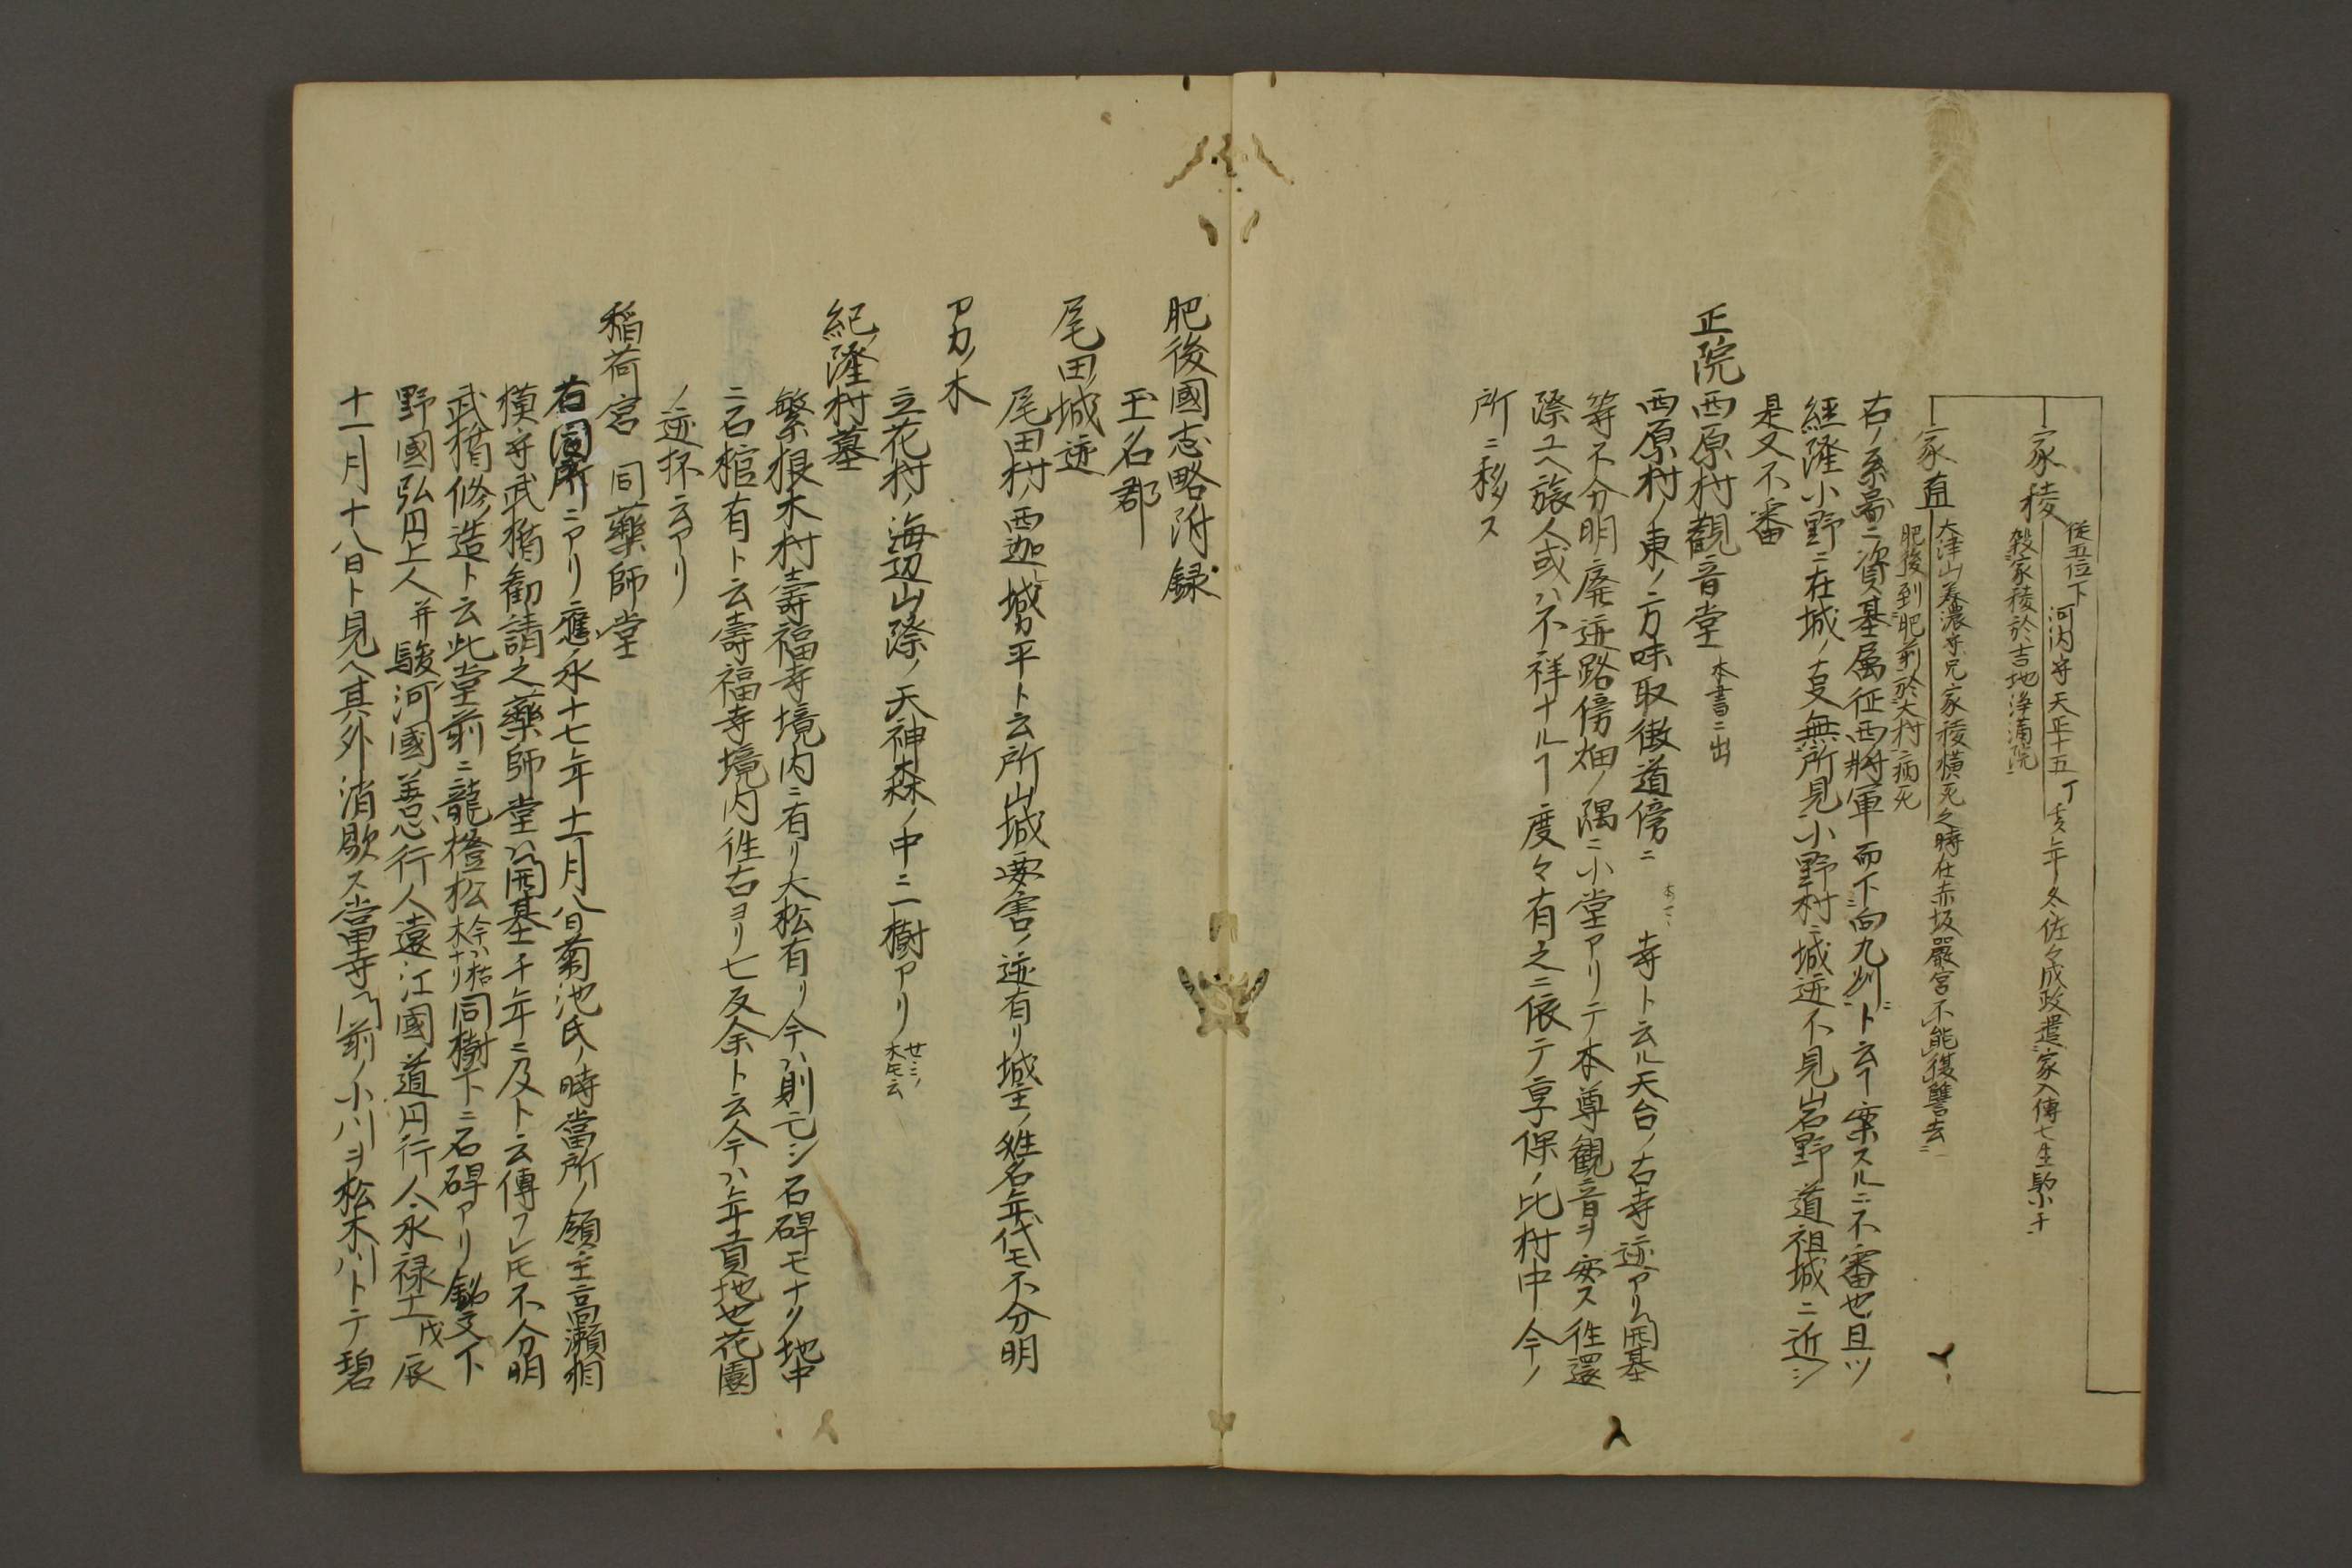 家稜 従五位下 河内守 天正十五丁亥年冬佐々成政遣家入傳七生駒小千
殺家稜於吉地浄満院
家直 大津山美濃守兄家稜横死之時在赤坂嚴宮不能復讐去
肥後到肥前於大村病死
右ノ系圖ニ資基属征西將軍而下向九州ト云ヿ案スルニ不審也且ツ
経隆小野ニ在城ノ支無所見小野村ニ城迹不見岩野道祖城ニ近シ
是又不審
正院
西原村觀音堂 本書ニ出
西原村ノ東ノ方味取徹道傍ニ 寺ト云ル天台ノ古寺迹アリ開基
等不分明廃迹路傍畑ノ隅ニ小堂アリテ本尊観音ヲ安ス往還
際ユヘ旅人或ハ不祥ナルヿ度々有之ニ依テ享保ノ比村中今ノ
所ニ移ス
肥後國志略附録
玉名郡
尾田城迹
尾田村ノ西迦城平ト云所山城要害ノ迹有リ城主ノ姓名年代モ不分明
アカノ木
立花村ノ海辺山際ノ天神森ノ中ニ二樹アリ
紀隆村墓
繁根木村壽福寺境内ニ有リ大松有リ今ハ則亡シ石碑モナク地中
ニ石棺有ト云壽福寺境内往古ヨリ七反余ト云今ハ年貢地也花園
ノ迹抔云アリ
稲荷宮 同藥師堂
右同所ニアリ應永十七年十一月八日菊池氏ノ時當所ノ領主高瀬相
模守武楯勧請之藥師堂ハ開基千年ニ及ト云傳フレ𪜈不分明
武楯修造ト云此堂前ニ龍橙松 今ハ枯木ナリ 同樹下ニ石碑アリ銘文下
野國弘円上人并駿河國善忍行人遠江國道円行人永禄十一戊辰
十一月十八日ト見ヘ其外消歇ス當寺門前ノ小川ヲ松木川トテ碧